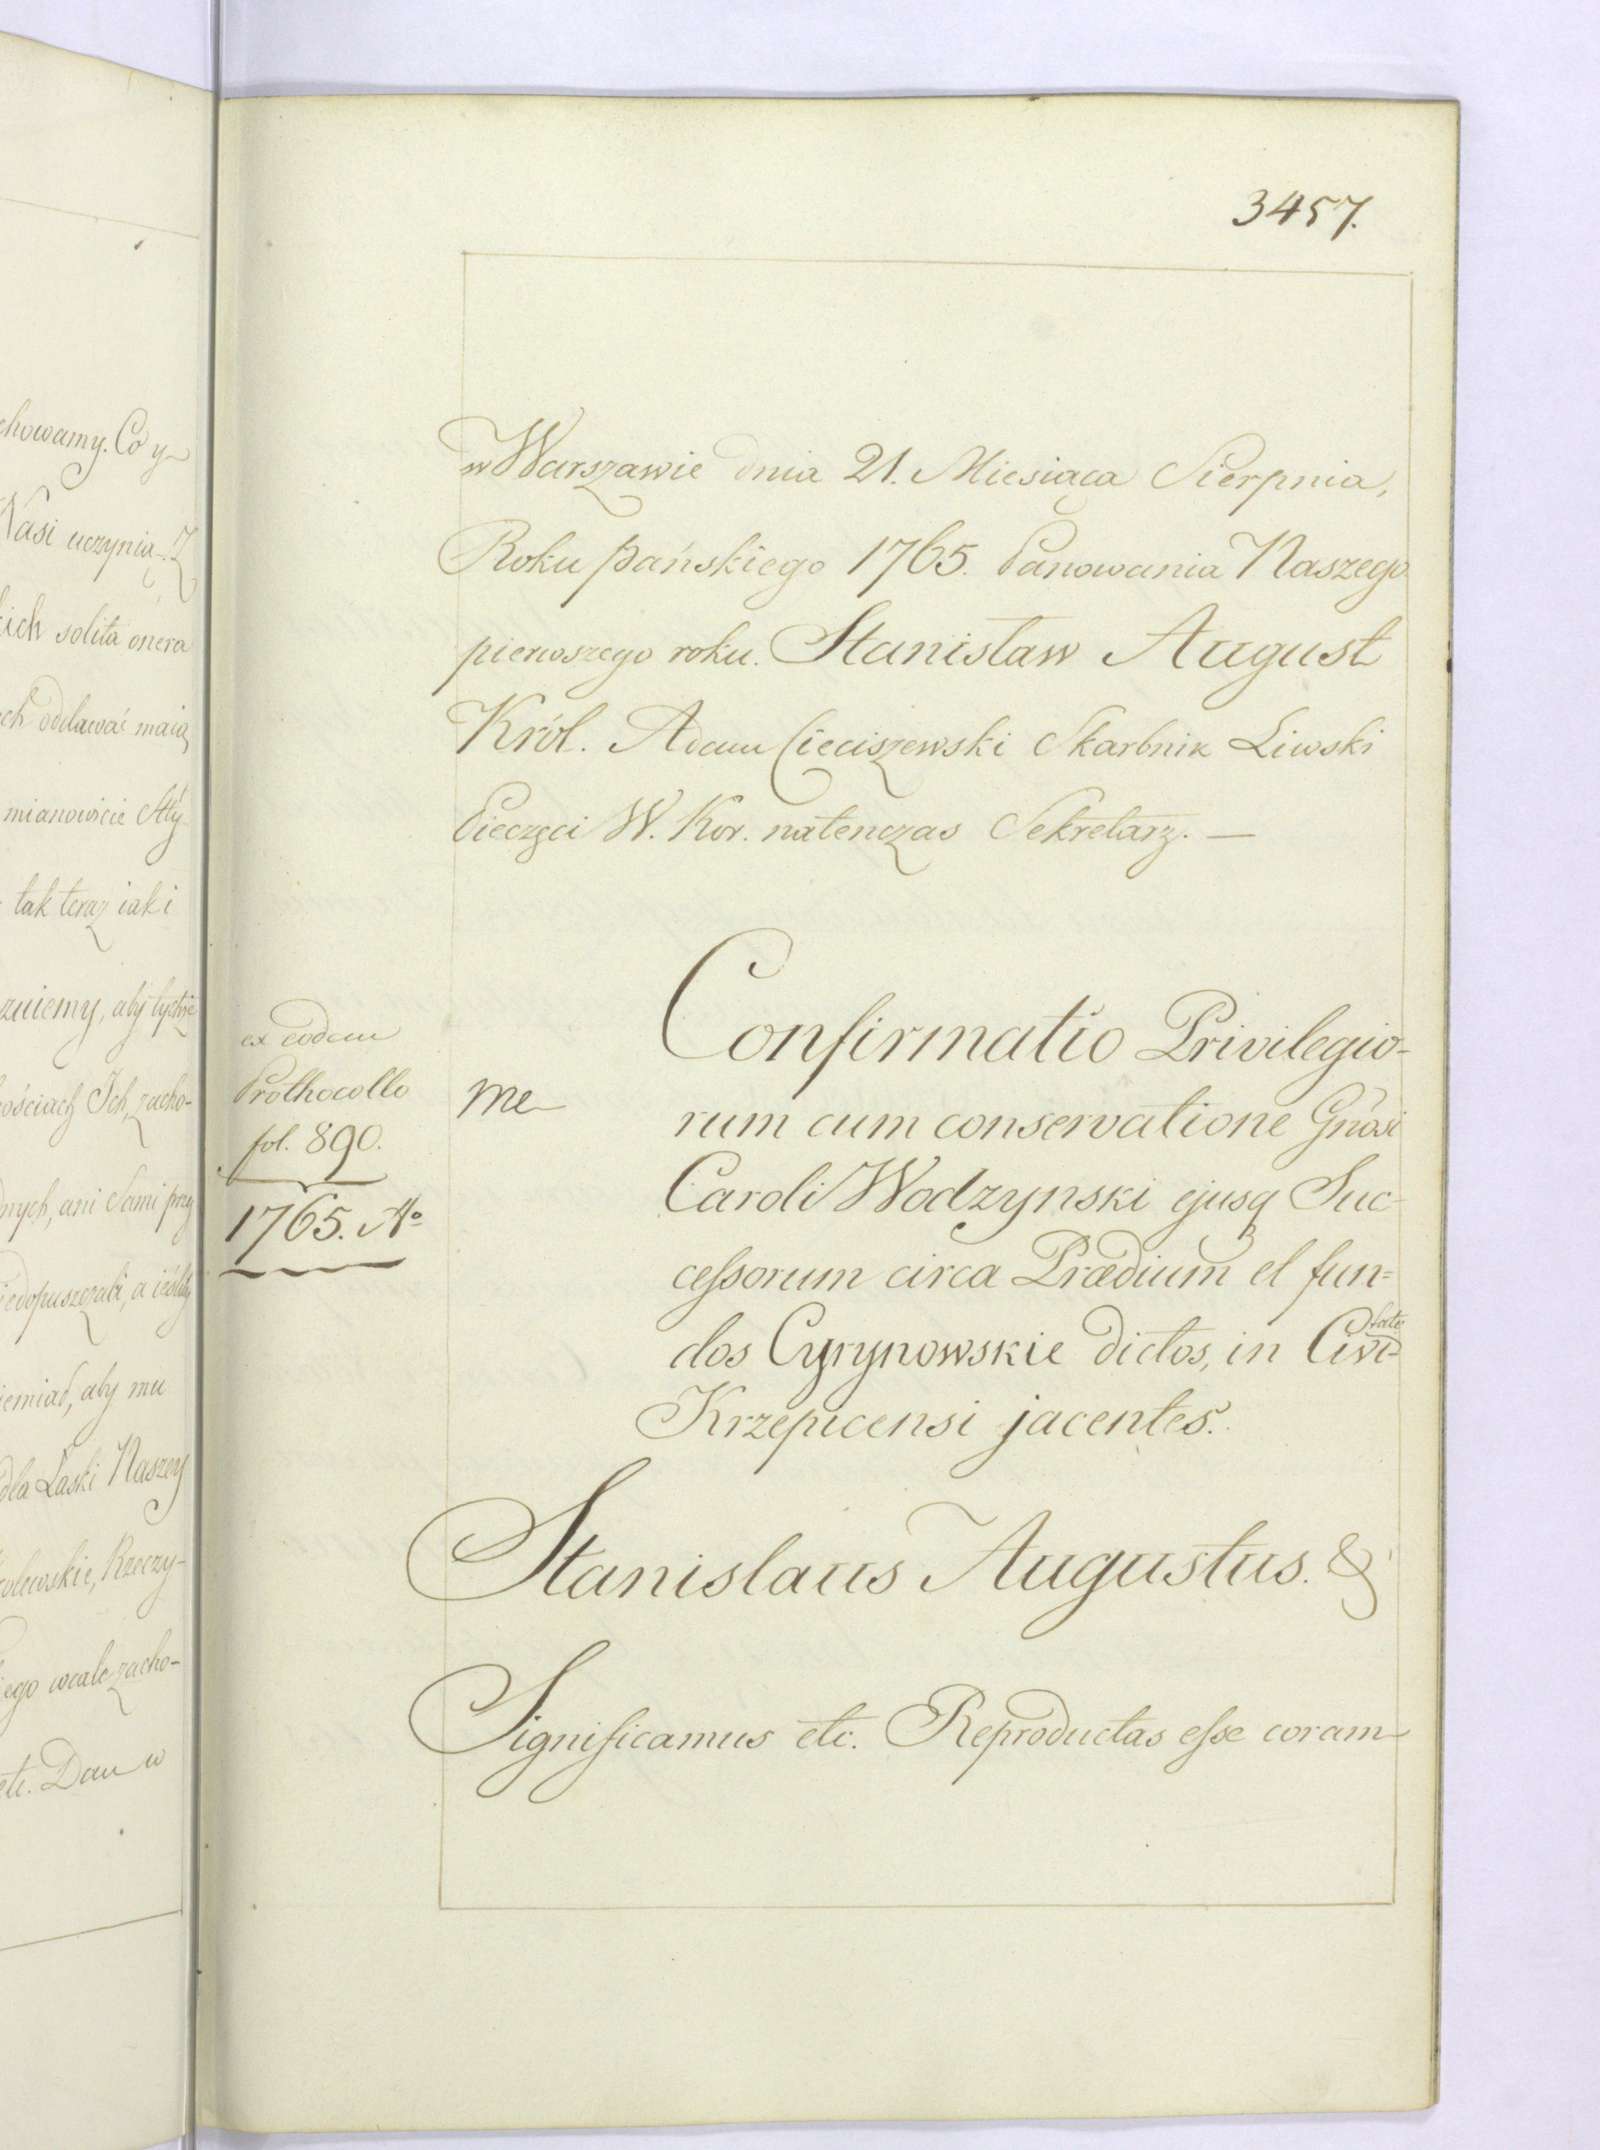 howamy. Co y
Nasi uczynią. Z
kich solita onera
ch oddawać maią,
mianowicie Aty-
tak teraz iak i
zuiemy, aby tychże
ościach Ich, zacho-
nych, ani Sami przy
dopuszczali, a ieśliby
iemiał, aby mu
dla Łaski Naszey
olewskie, Rzeczy-
ego wcale zacho-
etc. Dan w
3457.
w Warszawie dnia 21. Miesiąca Sierpnia,
Roku pańskiego 1765. Panowania Naszego
pierwszego roku. Stanisław August
Król. Adam Cieciszewski Skarbnik Liwski
Pieczęci W. Kor. natenczas Sekretarz. —
ex eodem
Prothocollo
fol. 890.
1765. Ao
me
Confirmatio Privilegio-
rum cum conservatione Gnosi
Caroli Wodzynski ejusq Suc-
cessorum circa Prædium et fun=
dos Cyrynowskie dictos, in Civitate
Krzepicensi jacentes.
Stanislaus Augustus. &
Significamus etc. Reproductas esse coram